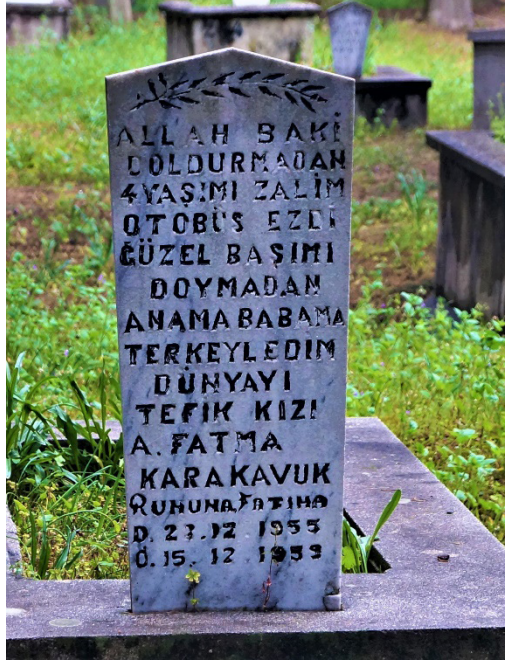 ALLAH BAKİ
DOLDURMADAN
4 YAŞIMI ZALİM
OTOBÜS EZDİ
GÜZEL BAŞIMI
DOYMADAN
ANAMA BABAMA
TERKEYLEDİM
DÜNYAYI
TEFİK KIZI
A. FATMA
KARAKAVUK
RUHUNA FATİHA
D. 23.12 1955
Ö. 15.12 1959